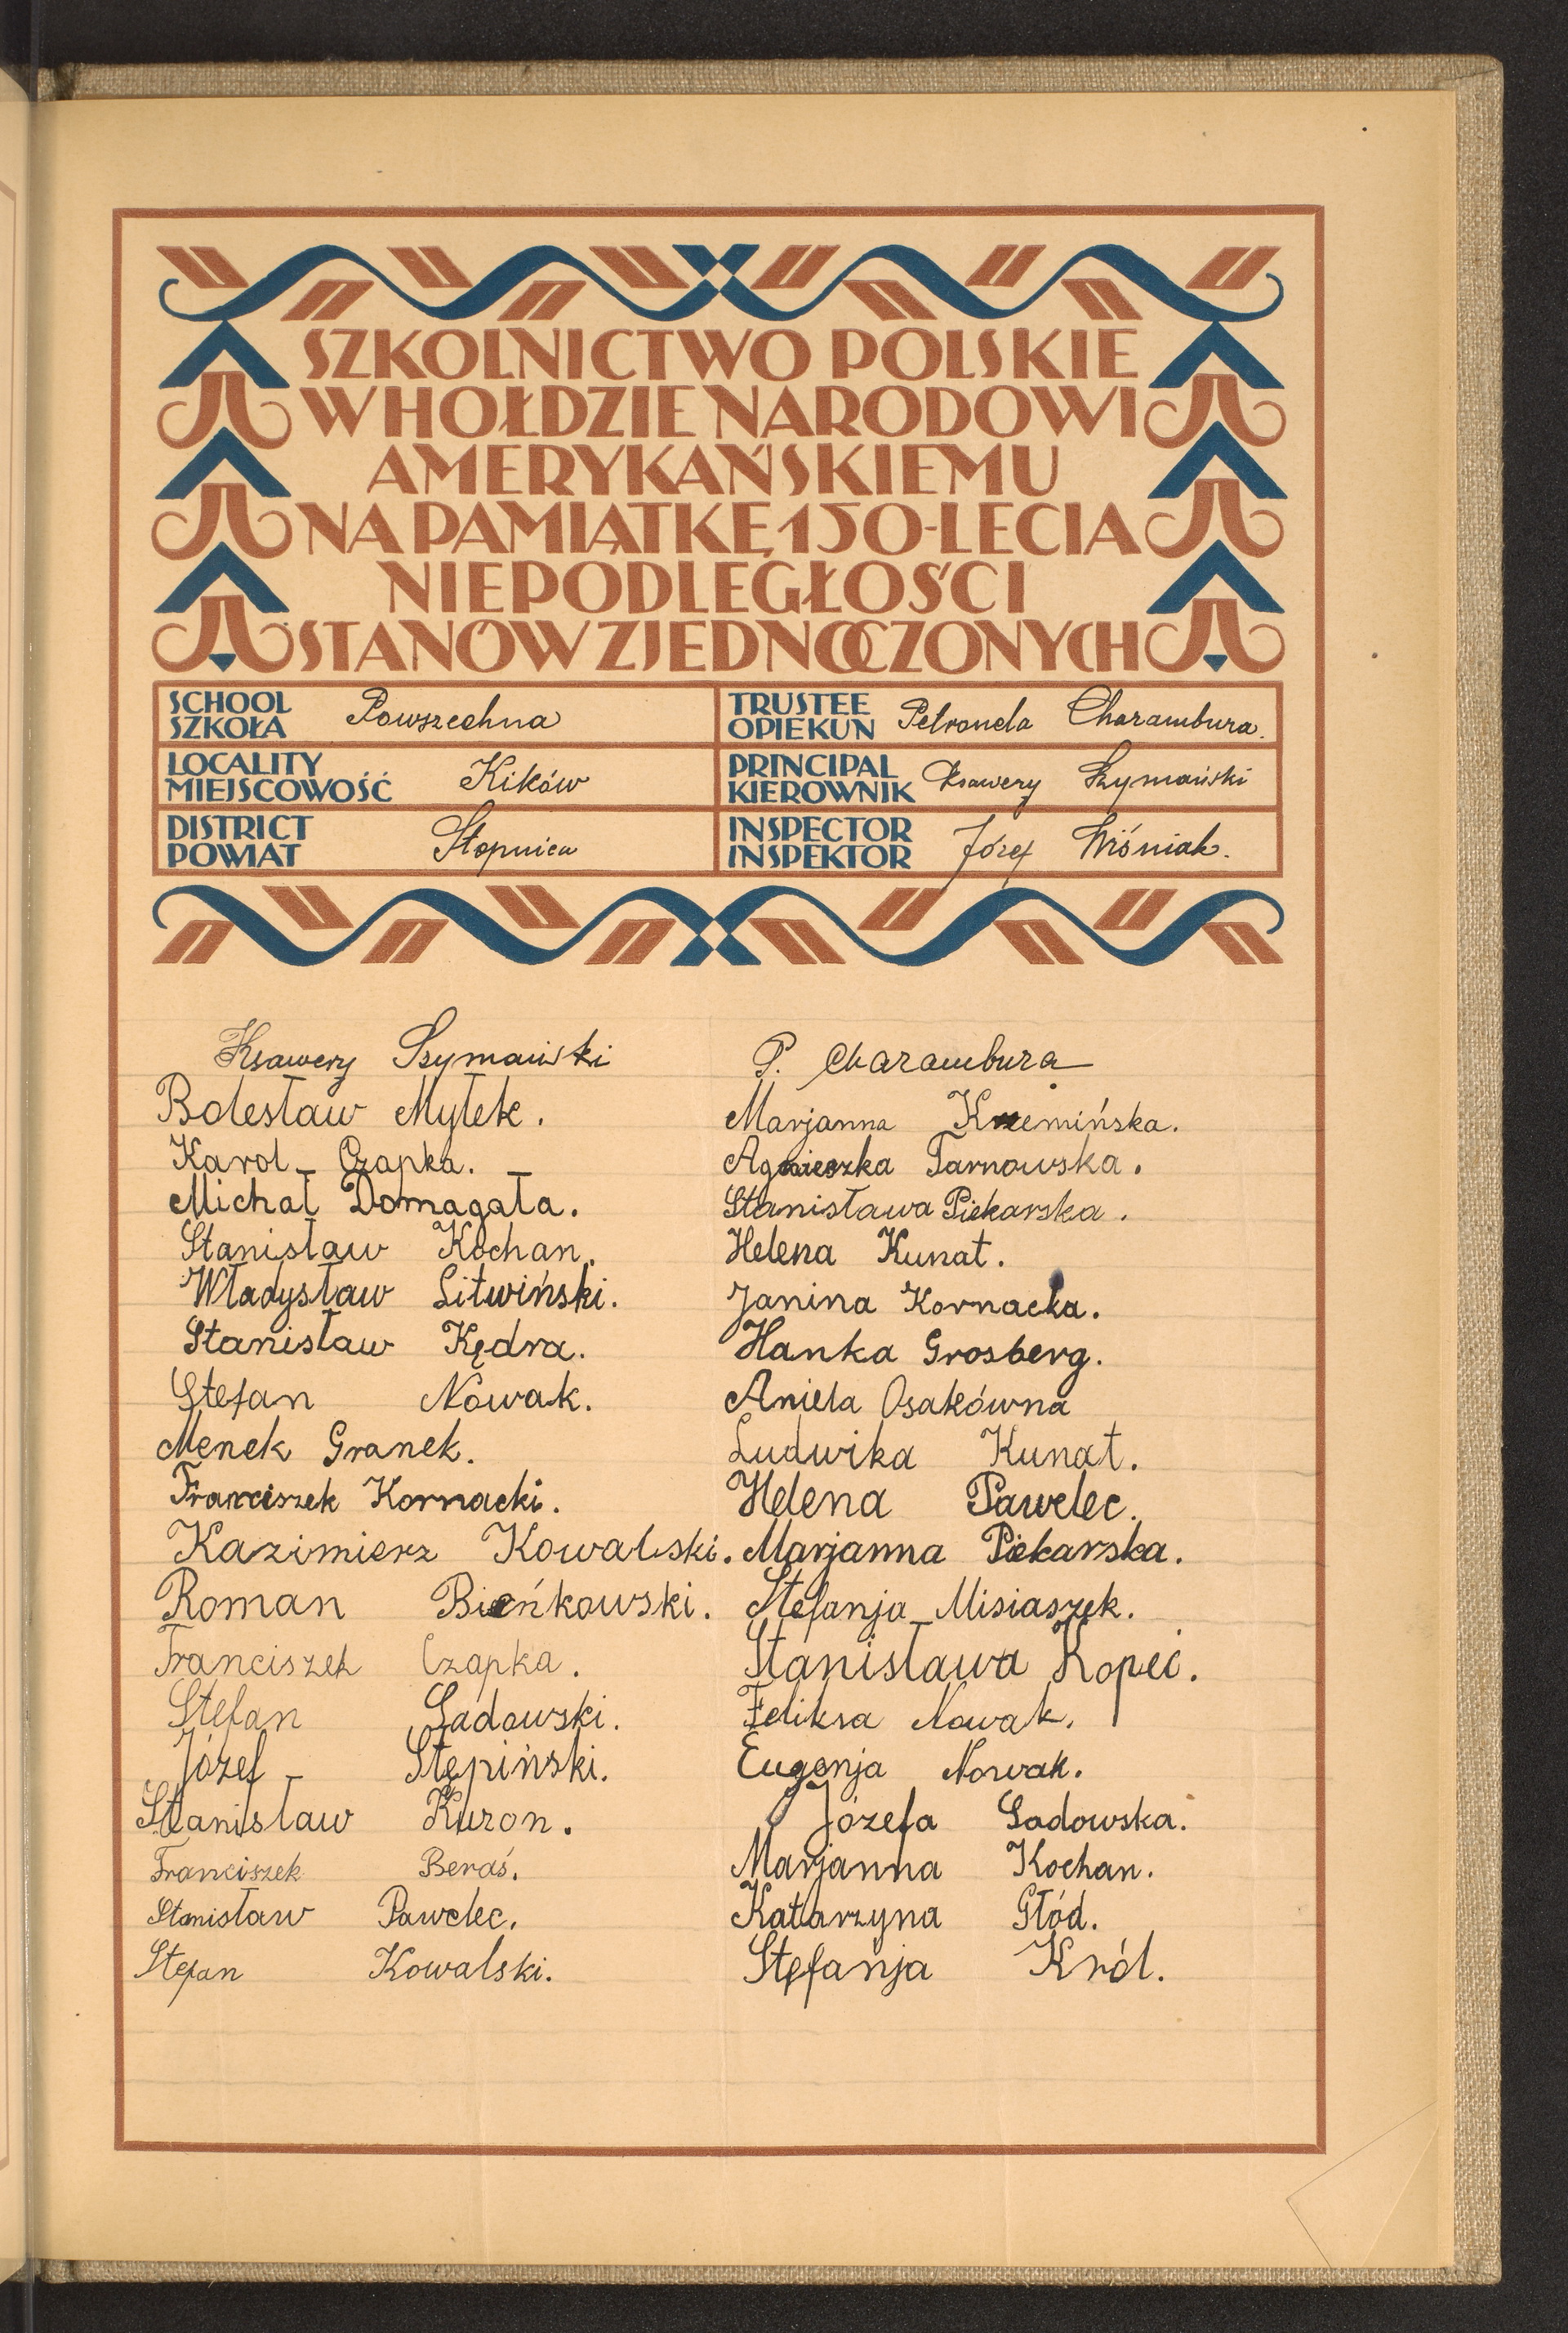 SZKOLNICTWO POLSKIE
W HOŁDZIE NARODOWI
AMERYKAŃSKIEMU
NA PAMIĄTKĘ 150-LECIA
NIEPODLEGŁOŚCI
STANÓW ZJEDNOCZONYCH
SCHOOL
SZKOŁA Powszechna
TRUSTEE
OPIEKUN Petronela Charambura.
LOCALITY
MIEJSCOWOŚĆ Kików
PRINCIPAL
KIEROWNIK Ksawery Szymański
DISTRICT
POWIAT Stopnica
INSPECTOR
INSPEKTOR Józef Wiśniak.
Ksawery Szymański
Bolesław Mylek.
Karol Czapka.
Michał Domagała.
Stanisław Kochan.
Władysław Litwiński.
Stanisław Kędra.
Stefan Nowak.
Menek Granek.
Franciszek Kornacki.
Kazimierz Kowalski.
Roman Bieńkowski.
Franciszek Czapka.
Stefan Sadowski.
Józef Stępiński.
Stanisław Kuron.
Franciszek Beraś.
Stanisław Pawelec.
Stefan Kowalski.
P. Charambura
Marjanna Krzemińska.
Agnieszka Tarnowska.
Stanisława Piekarska.
Helena Kunat.
Janina Kornacka.
Hanka Grosberg.
Aniela Osakówna
Ludwika Kunat.
Helena Pawelec.
Marjanna Piekarska.
Stefanja Misiaszek.
Stanisława Kopeć.
Feliksa Nowak.
Eugenja Nowak.
Józefa Sadowska.
Marjanna Kochan.
Katarzyna Głód.
Stefanja Król.